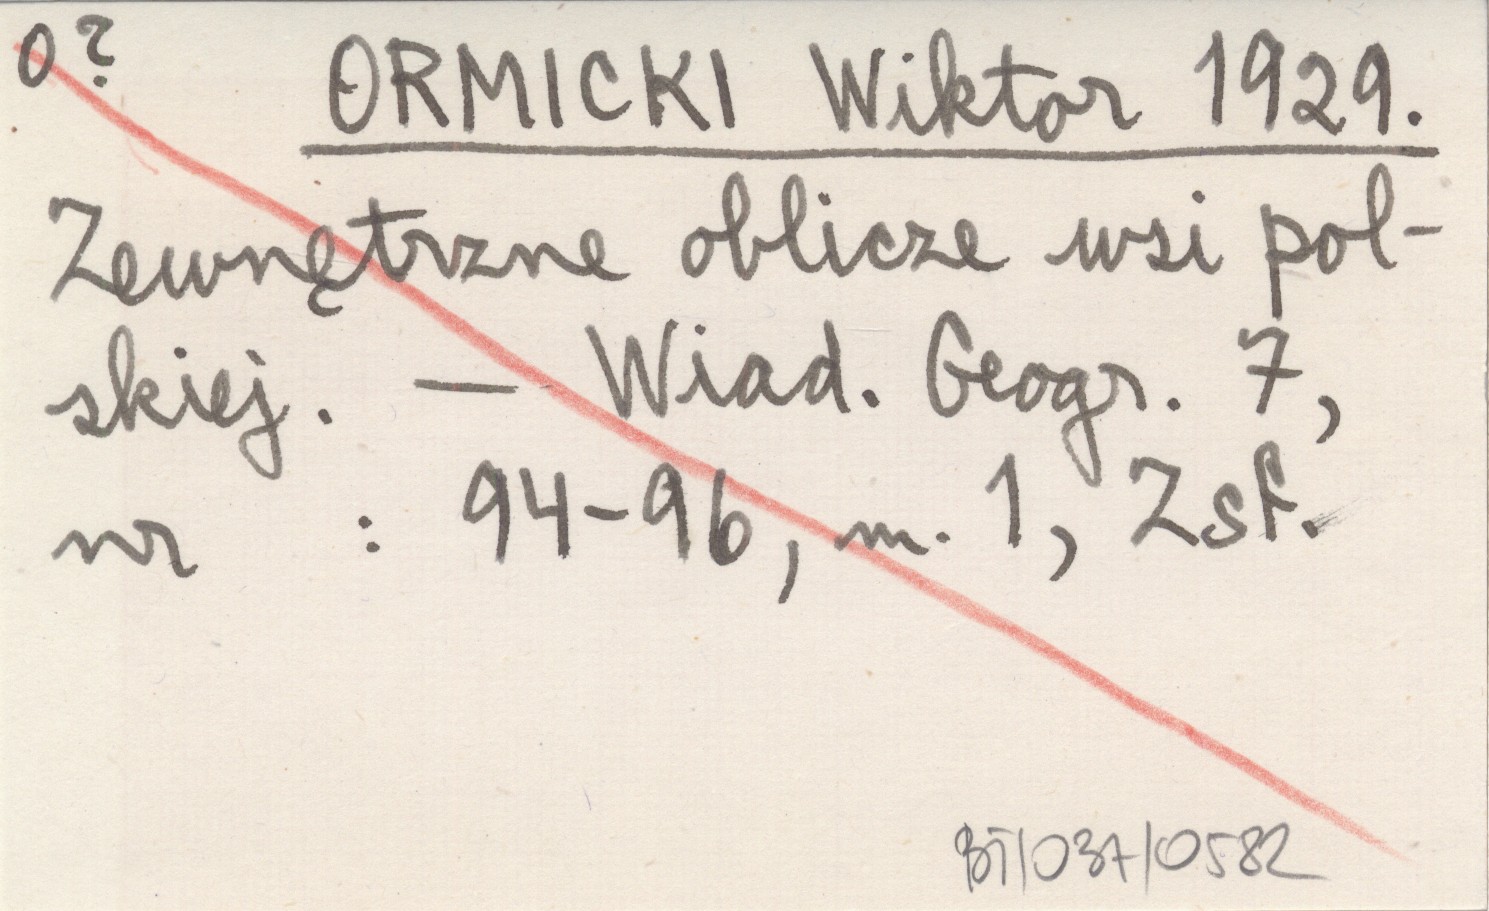 O?
ORMICKI Wiktor 1929.
Zewnętrzne oblicze wsi pol-
skiej. — Wiad. Geogr. 7,
nr : 94-96, m. 1, Zsf.
BT/037/0582